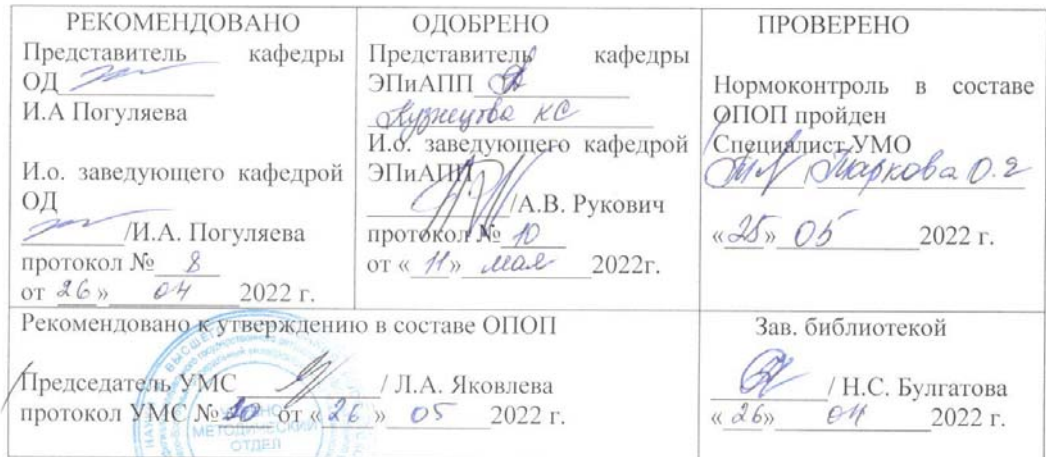 РЕКОМЕНДОВАНО
Представитель кафедры
ОД
И.А Погуляева
И.о. заведующего кафедрой
ОД
/И.А. Погуляева
протокол № 8
от 26 » 04 2022 г.
ОДОБРЕНО
Представитель кафедры
ЭПиАПП
Кузнецова КС
И.о. заведующего кафедрой
ЭПиАПП
/А.В. Рукович
протокол № 10
от « 11 » мая 2022г.
ПРОВЕРЕНО
Нормоконтроль в составе
ОПОП пройден
Специалист УМО
« 25 » 05 2022 г.
Рекомендовано к утверждению в составе ОПОП
Председатель УМС / Л.А. Яковлева
протокол УМС № 10 от « 26 » 05 2022 г.
УЧЕБНО
МЕТОДИЧЕСКИЙ
ОТДЕЛ
Зав. библиотекой
/ Н.С. Булгатова
« 26» 04 2022 г.